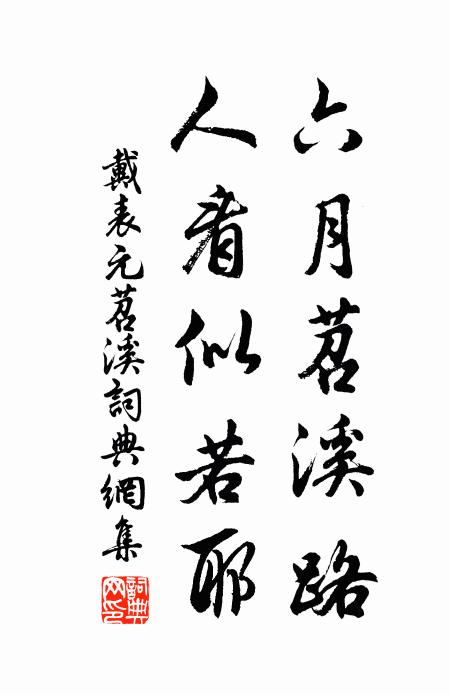 六月苕溪路
人看似若耶
戴表元苕溪詞典網集
詞典網印